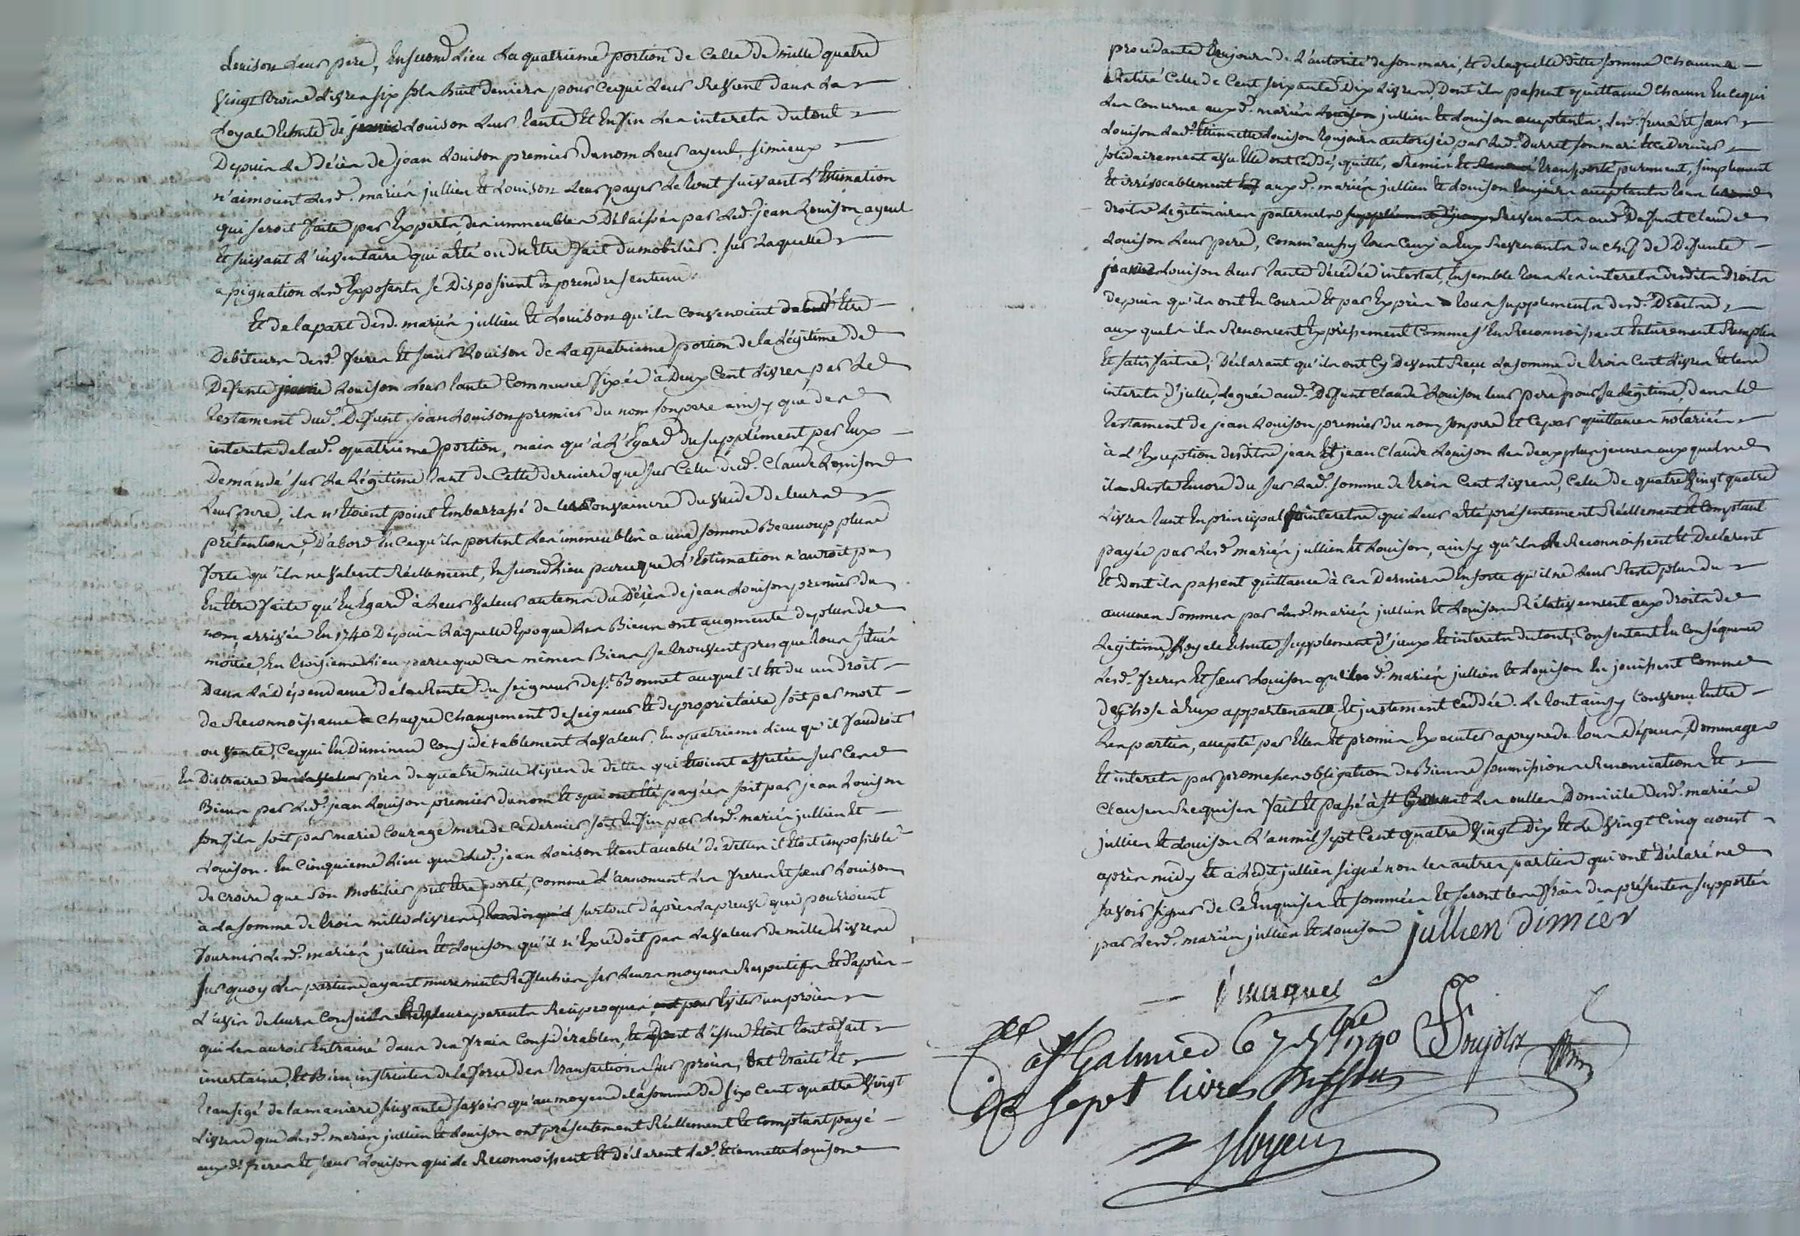 Louison leur pere, En second Lieu La quatrieme portion de Celle de mille quatre
Vingt treize Livres six sols huit deniers pour Ce qui leur Revient dans La
Loyale Echute de Louison leur tante Et Enfin Les interets du tout
Depuis Le Décès de Jean Louison premier du nom Leur ayeul, si mieux
n'aimoient Lesd. mariés jullien Et Louison Leur payer Le tout suivant L'Estimation
qui seroit faite par Experts des immeubles Délaissés par Led. jean Louison ayeul
Et suivant L'inventaire qui a Eté ou du Etre fait du mobilier. Sur Laquelle
apignation Lesd. Exposants se Disposoient de prendre sentence
Et de la part desd. mariés jullien Et Louison qu'ils Convenoient Etre
Debiteurs desd. freres Et sœurs Louison de La quatrieme portion de la Légitime de
Defunte Louison leur tante Commune fixée à Deux Cent Livres par Le
testament dud. Defunt jean Louison premier du nom son pere ainsy que de
interets de lad. quatrieme portion, mais qu'à L'Egard du supplément par Eux
Demandé sur La Légitime tant de Cette derniere que sur Celle dud. Claude Louison
Leur pere, ils n'Etoient point Embarrassé de les Convaincre du vuide de leurs
prétentions, D'abord En Ce qu'ils portent Les immeubles a une somme Beaucoup plus
forte qu'ils ne valent Réellement, En second Lieu parce que L'Estimation n'auroit pu
En Etre faite qu'En Egard à Leur valeur au tems du Décès de jean Louison premier du
nom arrivée En 1740 Depuis Laquelle Epoque Les Biens ont augmenté de plus de
moitié, En troisieme Lieu parce que Ces mêmes Biens se trouvent presque tous situés
Dans La dépendance de la Rente du seigneur de St. Bonnet auquel il Est du un droit
de Reconnoissance a chaque changement de seigneur Et de proprietaire soit par mort
ou vente, Ce qui En Diminue Considérablement La valeur. En quatrieme Lieu qu'il faudroit
En Distraire près de quatre mille Livres de dettes qui Etoient affectées sur Ces
Biens par Led. jean Louison premier du nom payées soit par jean Louison
son fils soit par marie Courage mere de Ce dernier soit Enfin par Lesd. mariés jullien Et
Louison. En Cinquieme Lieu que Led. jean Louison Etant accablé de dettes il Etoit impossible
de Croire que son mobilier put Etre porté, Comme L'annoncent Les freres Et sœurs Louison
à La somme de trois mille Livres, surtout d'après La preuve que pourroient
fournir Lesd. mariés jullien Et Louison qu'il n'Excédoit pas La valeur de mille Livres
Sur quoy Les parties ayant murement Réfléchies sur leurs moyens Respectifs Et d'après
L'avis de leurs Conseils Et de leurs parents Reciproques, Eviter un procès
qui Les auroit Entrainé dans des frais Considérables, Et dont L'issue Etoit tout a fait
incertaine, Et Bien instruites de la force des transactions sur procès, Ont traité Et
transigé de la maniere suivante savoir qu'au moyen de la somme de six Cent quatre Vingt
Livres que Lesd. mariés jullien Et Louison ont présentement Réellement Et Comptant payé
auxd. freres Et sœurs Louison qui Le Reconnoissent Et déclarent Lad. Etiennette Louison
procédante toujours de L'autorité de son mari, Et de laquelle ditte somme Chacun a
Retiré Celle de Cent soixante Dix Livres Dont ils passent quittance Chacun En Ce qui
Les Concerne auxd. mariés jullien Et Louison acceptants, Lesd. freres Et sœurs
Louison Lad. Etiennette Louison toujours autorisée par Led. Durret son mari Et Ce Dernier
solidairement avec Elle ont Cédé, quitté, Remis Et transporté purement, simplement
Et irrévocablement auxd. mariés jullien Et Louison tous Les
droits Légitimaires paternels Revenants aud. Defunt Claude
Louison Leur pere, Comm'aussy tous Ceux a Eux Revenants du Chef de Defunte
Louison leur tante décédée intestat, Ensemble tous Les interets desdits Droits
depuis qu'ils ont En Cours Et par Exprès tous supplements desd. Droits
auxquels ils Renoncent Expressement Comme s'En Reconnoissant Entierement Remplis
Et satisfaits; Déclarant qu'ils ont Cy Devant Reçu La somme de trois Cent Livres Et les
interets d'jcelle, Leguée aud. Defunt Claude Louison leur pere pour sa Légitime, dans le
testament de jean Louison premier du nom son pere Et Ce par quittances notariées
à L'Exception desdits jean Et jean Claude Louison Les deux plus jeunes auxquels
il Reste Encore du sur Lad. somme de trois Cent Livres, Celle de quatre Vingt quatre
Livres tant En principal qu'interets qui Leur a Eté présentement Réellement Et Comptant
payée par Lesd. mariés jullien Et Louison, ainsy qu'ils Le Reconnoissent Et Declarent
Et Dont ils passent quittance à Ces Derniers En sorte qu'il ne Leur Reste plus du
aucunes Sommes par Lesd. mariés jullien Et Louison Rélativement aux droits de
Légitime, Loyale Echute, supplement d'jceux Et interets du tout; Consentant En Conséquence
Lesd. freres Et sœur Louison que Lesd. mariés jullien Et Louison En jouissent Comme
de Chose à Eux appartenante Et justement Cédée. Le tout ainsy Convenu Entre
Les parties, accepté par Elles Et promis Executer a peyne de tous Dépens, Dommages
Et interets par promesses obligation de Biens soumissions Renonciations Et
Clauses Requises fait Et passé à St Les oulles Domicile desd. mariés
jullien Et Louison L'an mil sept Cent quatre Vingt Dix Et Le Vingt Cinq aoust
après midy Et a Ledit jullien signé non les autres parties qui ont déclaré ne
savoir signer de Ce Enquises Et sommées Et seront les frais des présentes supportés
par Lesd. mariés jullien Et Louison jullien dimier
a St Galmier Le 6 7bre 1790
Sept livres